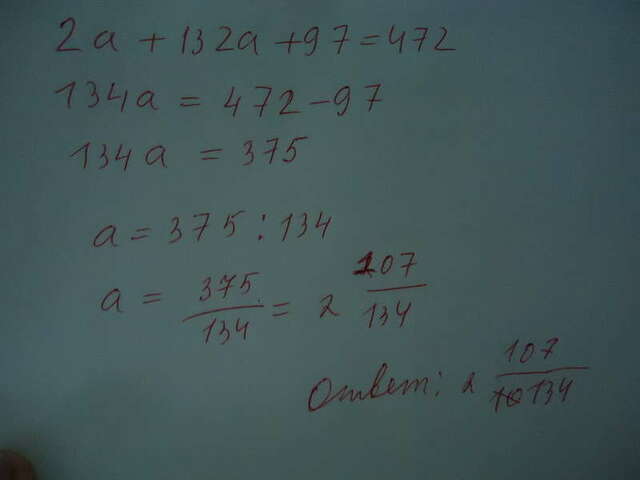 2a + 132a + 97 = 472
134a = 472 - 97
134a = 375
a = 375 : 134
a = 375/134 = 2 107/134
Ответ: 2 107/134